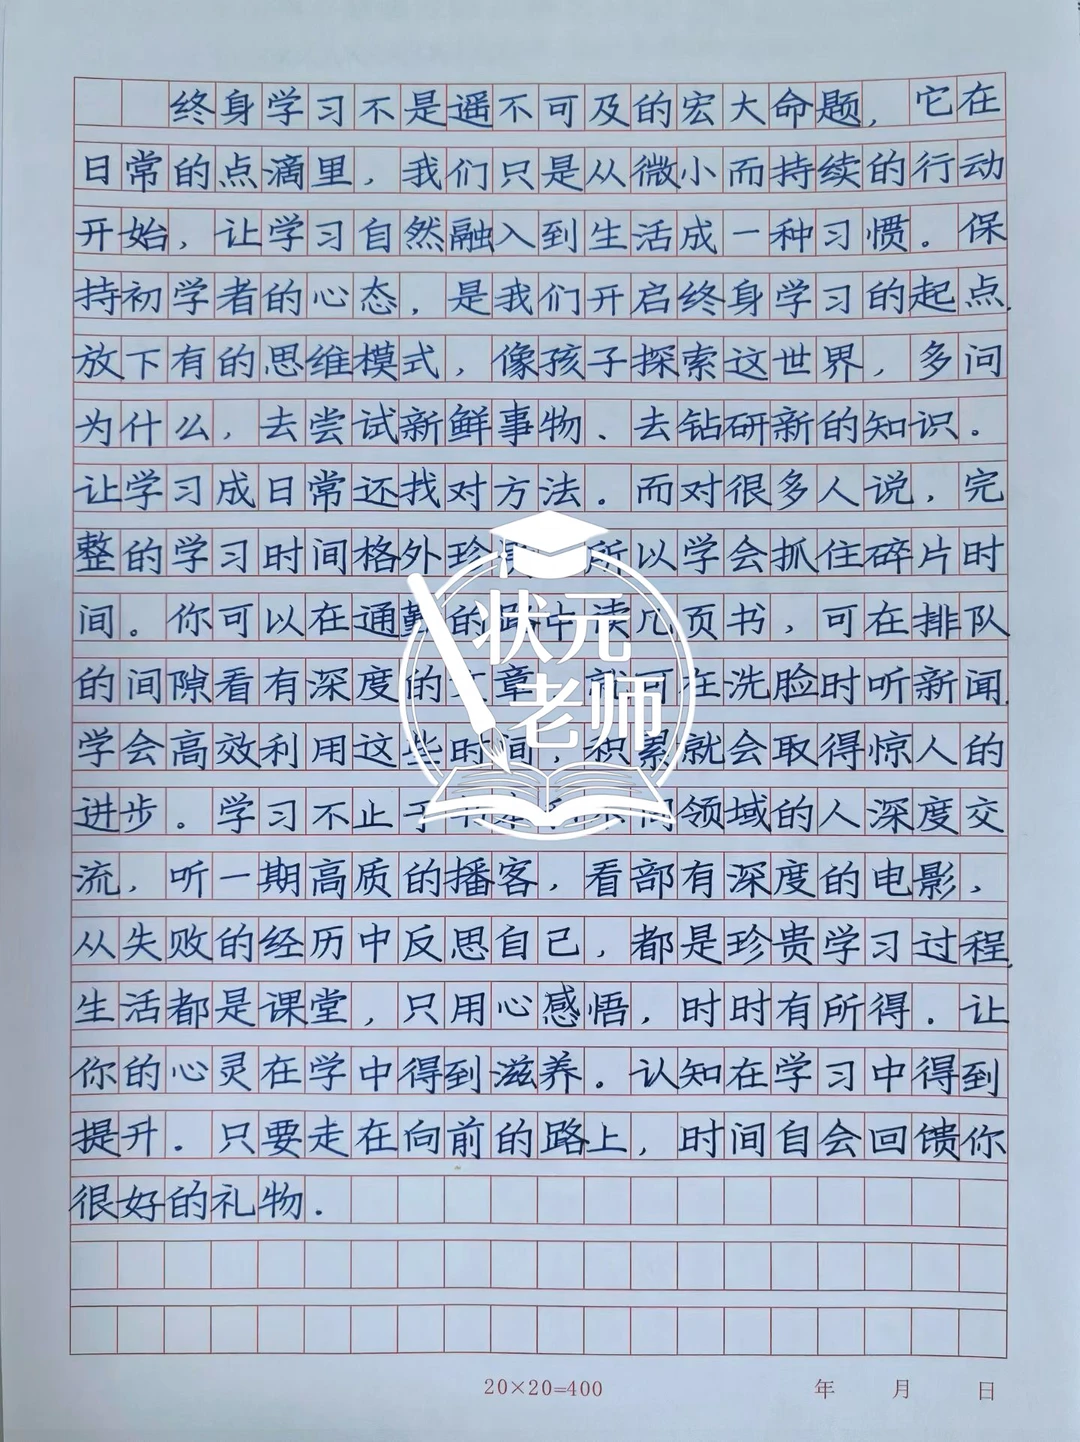 终身学习不是遥不可及的宏大命题，它在
日常的点滴里，我们只是从微小而持续的行动
开始，让学习自然融入到生活成一种习惯。保
持初学者的心态，是我们开启终身学习的起点.
放下有的思维模式，像孩子探索这世界，多问
为什么，去尝试新鲜事物、去钻研新的知识。
让学习成日常还找对方法．而对很多人说，完
整的学习时间格外珍 所以学会抓住碎片时
间。你可以在通勤的路中读几页书，可在排队
的间隙看有深度的文章 可在洗脸时听新闻.
学会高效利用这些时间，积累就会取得惊人的
进步。学习不止于 同领域的人深度交
流，听一期高质的播客，看部有深度的电影，
从失败的经历中反思自己，都是珍贵学习过程.
生活都是课堂，只用心感悟，时时有所得．让
你的心灵在学中得到滋养．认知在学习中得到
提升．只要走在向前的路上，时间自会回馈你
很好的礼物．
状元
老师
20×20=400 年 月 日